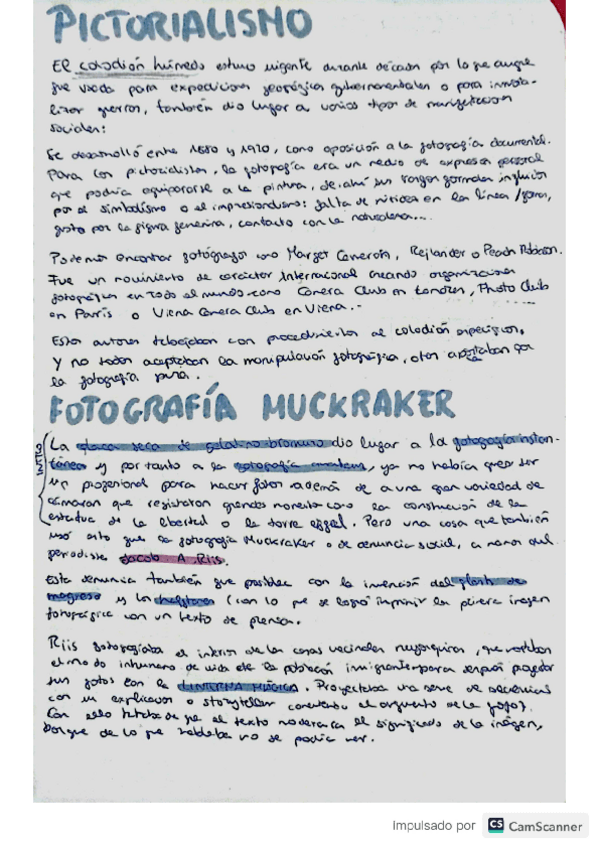 PICTORIALISMO
El colodión húmedo estuvo vigente durante décadas por lo que aunque
fue usada para expediciones geológicas gubernamentales o para inmorta-
lizar guerras, también dio lugar a varios tipos de manifestaciones
sociales:
Se desarrolló entre 1880 y 1920, como oposición a la fotografía documental.
Para los pictorialistas, la fotografía era un medio de expresión personal
que podría equipararse a la pintura, de ahí sus rasgos formales influidos
por el simbolismo o el impresionismo: falta de nitidez en la línea/forma,
gusto por la figura femenina, contacto con la naturaleza...
Podemos encontrar fotógrafos como Marget Cameron, Rejlander o Peach Robinson.
Fue un movimiento de carácter internacional creando organizaciones
fotográficas en todo el mundo como Camera Club en Londres, Photo Club
en París o Viena Camera Club en Viena...
Estos autores trabajaban con procedimientos al colodión específicos,
y no todos aceptaban la manipulación fotográfica, otros apostaban por
la fotografía pura.
FOTOGRAFÍA MUCKRAKER
INTRO
La placa seca de gelatino bromuro dio lugar a la fotografía instan-
tánea y por tanto a la fotografía amateur, ya no había que ser
un profesional para hacer fotos además de a una gran variedad de
cámaras que registraron grandes momentos como la construcción de la
estatua de la libertad o la torre eiffel. Pero una cosa que también
usó esto fue la fotografía Muckraker o de denuncia social, a manos del
periodista Jacob A. Riis.
Esta denuncia también fue posible con la invención del flash de
magnesio y los halftones (con lo que se logró imprimir la primera imagen
fotográfica con un texto de prensa.
Riis fotografiaba el interior de las casas vecinales neoyorquinas, que
el modo inhumano de vida de la población inmigrante para después proyectar
sus fotos con la LINTERNA MÁGICA. Proyectaba una serie de secuencias
con un explicador o storyteller el argumento de la foto.
Con ello trataba de que el texto moderara el significado de la imagen,
porque de lo que hablaba no se podía ver.
Impulsado por CS CamScanner